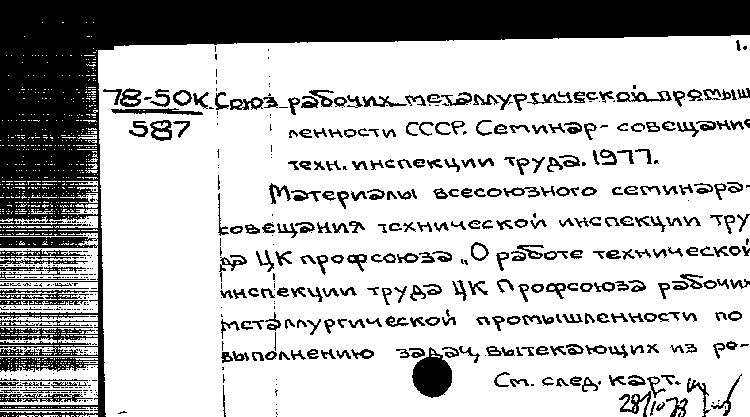 1.
78-50К Союз рабочих металлургической промыш
587 ленности СССР. Семинар-совещание
техн. инспекции труда. 1977.
Материалы всесоюзного семинара-
совещания технической инспекции тру
да ЦК профсоюза „О работе технической
инспекции труда ЦК Профсоюза рабочих
металлургической промышленности по
выполнению задач, вытекающих из ре-
См. след. карт.